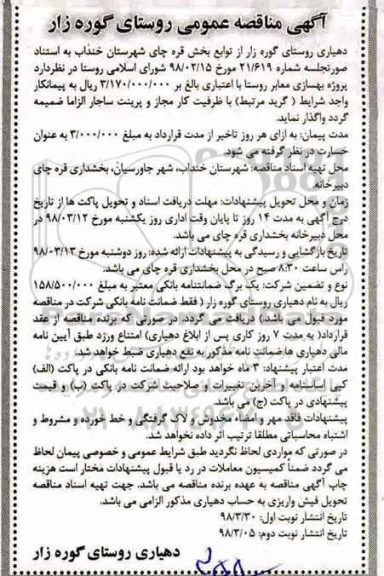 آگهی مناقصه عمومی روستای گوره زار
دهیاری روستای گوره زار از توابع بخش قره چای شهرستان خنداب به استناد
صورتجلسه شماره ۲۱/۶۱۹ مورخ ۹۸/۰۲/۱۵ شورای اسلامی روستا در نظردارد
پروژه بهسازی معابر روستا با اعتباری بالغ بر ۳/۱۷۰/۰۰۰/۰۰۰ ریال به پیمانکار
واجد شرایط ( گرید مرتبط) با ظرفیت کار مجاز و پرینت ساجار الزاما ضمیمه
گردد واگذار نماید.
مدت پیمان: به ازای هر روز تاخیر از مدت قرارداد به مبلغ ۳/۰۰۰/۰۰۰ به عنوان
خسارت در نظر گرفته می شود.
محل تهیه اسناد مناقصه: شهرستان خنداب، شهر جاورسیان، بخشداری قره چای
دبیرخانه
زمان و محل تحویل پیشنهادات: مهلت دریافت اسناد و تحویل پاکت ها از تاریخ
درج آگهی به مدت ۱۴ روز تا پایان وقت اداری روز یکشنبه مورخ ۹۸/۰۳/۱۲ در
محل دبیرخانه بخشداری قره چای می باشد.
تاریخ بازگشایی و رسیدگی به پیشنهادات ارائه شده: روز دوشنبه مورخ ۹۸/۰۳/۱۳
راس ساعت ۸:۳۰ صبح در محل بخشداری قره چای می باشد.
نوع و تضمین شرکت: یک برگ ضمانتنامه بانکی معتبر به مبلغ ۱۵۸/۵۰۰/۰۰۰
ریال به نام دهیاری روستای گوره زار ( فقط ضمانت نامه بانکی شرکت در مناقصه
مورد قبول می باشد) دریافت می گردد. در صورتی که برنده مناقصه از عقد
قرارداد( به مدت ۷ روز کاری پس از ابلاغ دهیاری) امتناع ورزد طبق آیین نامه
مالی دهیاری ها ضمانت نامه مذکور به نفع دهیاری ضبط خواهد شد.
مدت اعتبار پیشنهاد: ۳ ماه خواهد بود ارائه ضمانت نامه بانکی در پاکت (الف)
کپی اساسنامه و آخرین تغییرات و صلاحیت شرکت در پاکت (ب) و قیمت
پیشنهادی در پاکت (ج) می باشد.
پیشنهادات فاقد مهر و امضاء مخدوش و لاک گرفتگی و خط خورده و مشروط و
اشتباه محاسباتی مطلقا ترتیب اثر داده نخواهد شد.
در صورتی که مواردی لحاظ نگردید طبق شرایط عمومی و خصوصی پیمان لحاظ
می گردد ضمناً کمیسیون معاملات در رد یا قبول پیشنهادات مختار است هزینه
چاپ آگهی مناقصه به عهده برنده مناقصه می باشد. جهت تهیه اسناد مناقصه
تحویل فیش واریزی به حساب دهیاری مذکور الزامی می باشد.
تاریخ انتشار نوبت اول: ۹۸/۳/۳۰
تاریخ انتشار نوبت دوم: ۹۸/۳/۰۵
دهیاری روستای گوره زار